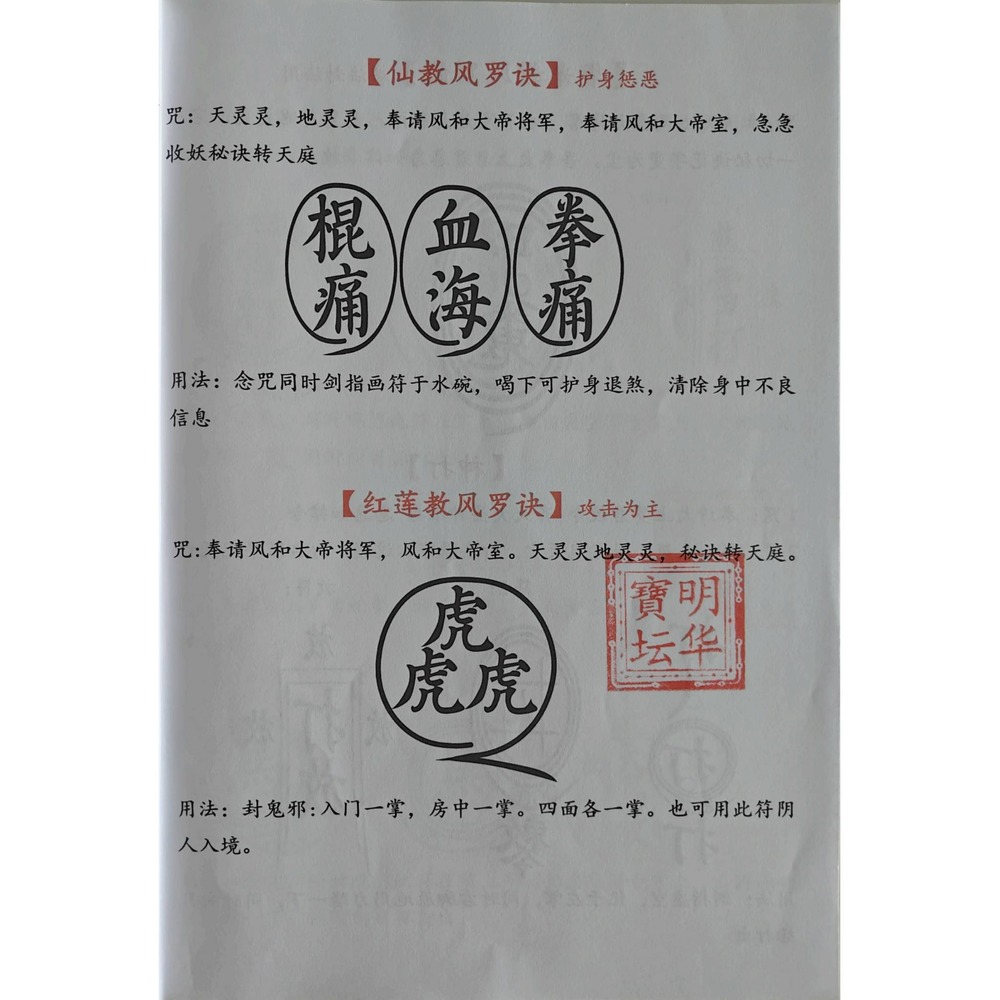 【仙教风罗诀】护身惩恶
咒：天灵灵，地灵灵，奉请风和大帝将军，奉请风和大帝室，急急
收妖秘诀转天庭
棍痛
血海
拳痛
用法：念咒同时剑指画符于水碗，喝下可护身退煞，清除身中不良
信息
【红莲教风罗诀】攻击为主
咒:奉请风和大帝将军，风和大帝室。天灵灵地灵灵，秘诀转天庭。
虎
虎虎
明华
寶坛
用法：封鬼邪:入门一掌，房中一掌。四面各一掌。也可用此符阴
人入境。